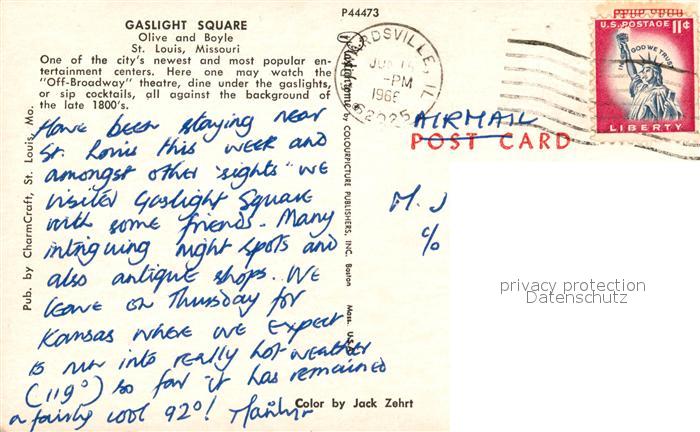 GASLIGHT SQUARE
Olive and Boyle
St. Louis, Missouri
One of the city's newest and most popular en-
tertainment centers. Here one may watch the
"Off-Broadway" theatre, dine under the gaslights,
or sip cocktails, all against the background of
the late 1800's.
Have been staying near
St. Louis this week and
amongst other "sights" we
visited Gaslight Square
with some friends. Many
intriguing night spots and
also antique shops. We
leave on Thursday for
Kansas where we expect
to run into really hot weather
(119°) so far it has remained
a fairly cool 92°!
Pub. by CharmCraft, St. Louis, Mo.
P44473
by COLOURPICTURE PUBLISHERS, INC. Boston Mass. U.S.A.
Color by Jack Zehrt
RDSVILLE, IL
PM
1966
62025
U.S. POSTAGE 11¢
IN GOD WE TRUST
LIBERTY
AIRMAIL
POST CARD
M. J
c/o
privacy protection
Datenschutz